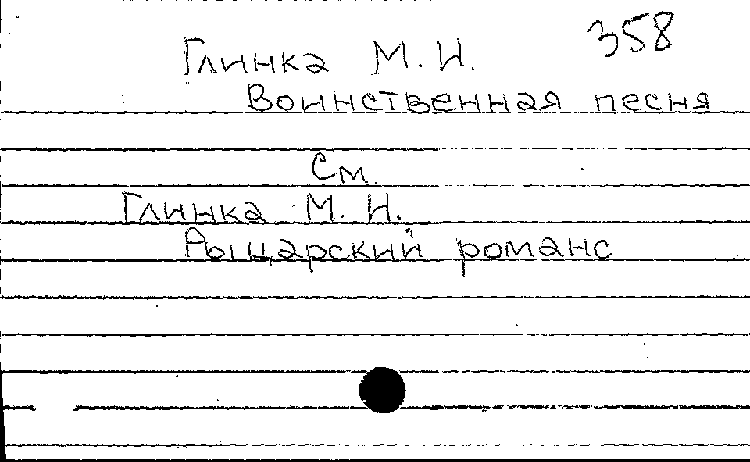 358
Глинка М. И.
Воинственная песня
См.
Глинка М. И.
Рыцарский романс